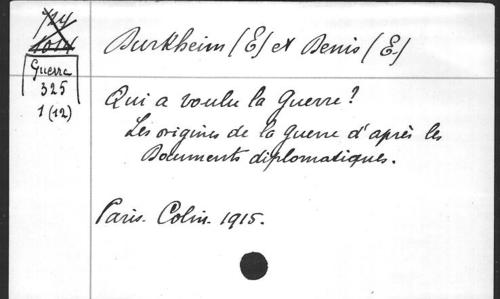 724
1014
Guerre
325
1 (12)
Durkheim (E) et Denis (E.)
Qui a voulu la Guerre?
Les origines de la guerre d'après les
Documents diplomatiques.
Paris. Colin. 1915.